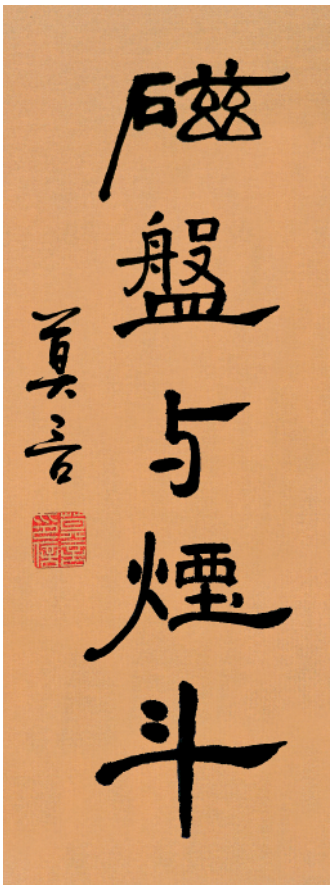 磁盤与煙斗
莫言